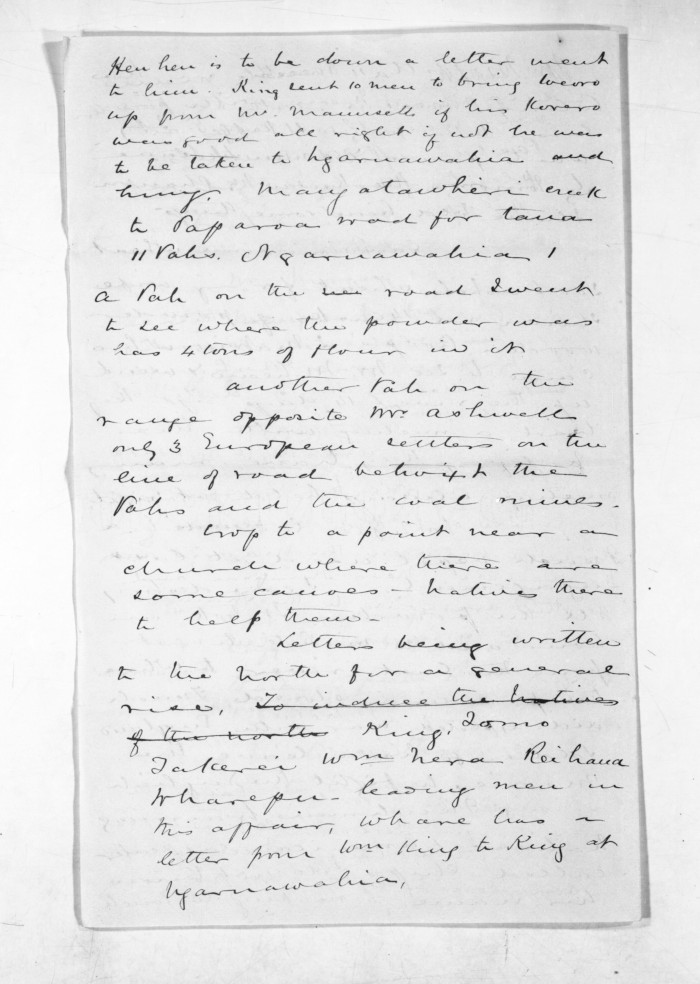 Heuheu is to be down a letter went
to him. King sent 10 men to bring
up from Mr. Maunsell if his Korero
was good all right if not he was
to be taken to Ngarnawahia and
hung. Mangatawhiri creek
to Paparoa road for taua
11 Pahs. Ngarnawahia 1
a Pah on the road I went
to see where the powder was
has 4 tons of flour in it
another Pah on the
range opposite Mr. Ashwell
only 3 European settlers on the
line of road betwixt the
Pahs and the coal mines.
to a point near a
church where there are
some canoes - Natives there
to help them -
Letters being written
to the North for a general
rise, To induce the Natives
of the north King, Tomo
Takerei Wm Nera Reihana
Wharepu - leading men in
this affair, Whare has a
letter from Wm King to King at
Ngarnawahia,